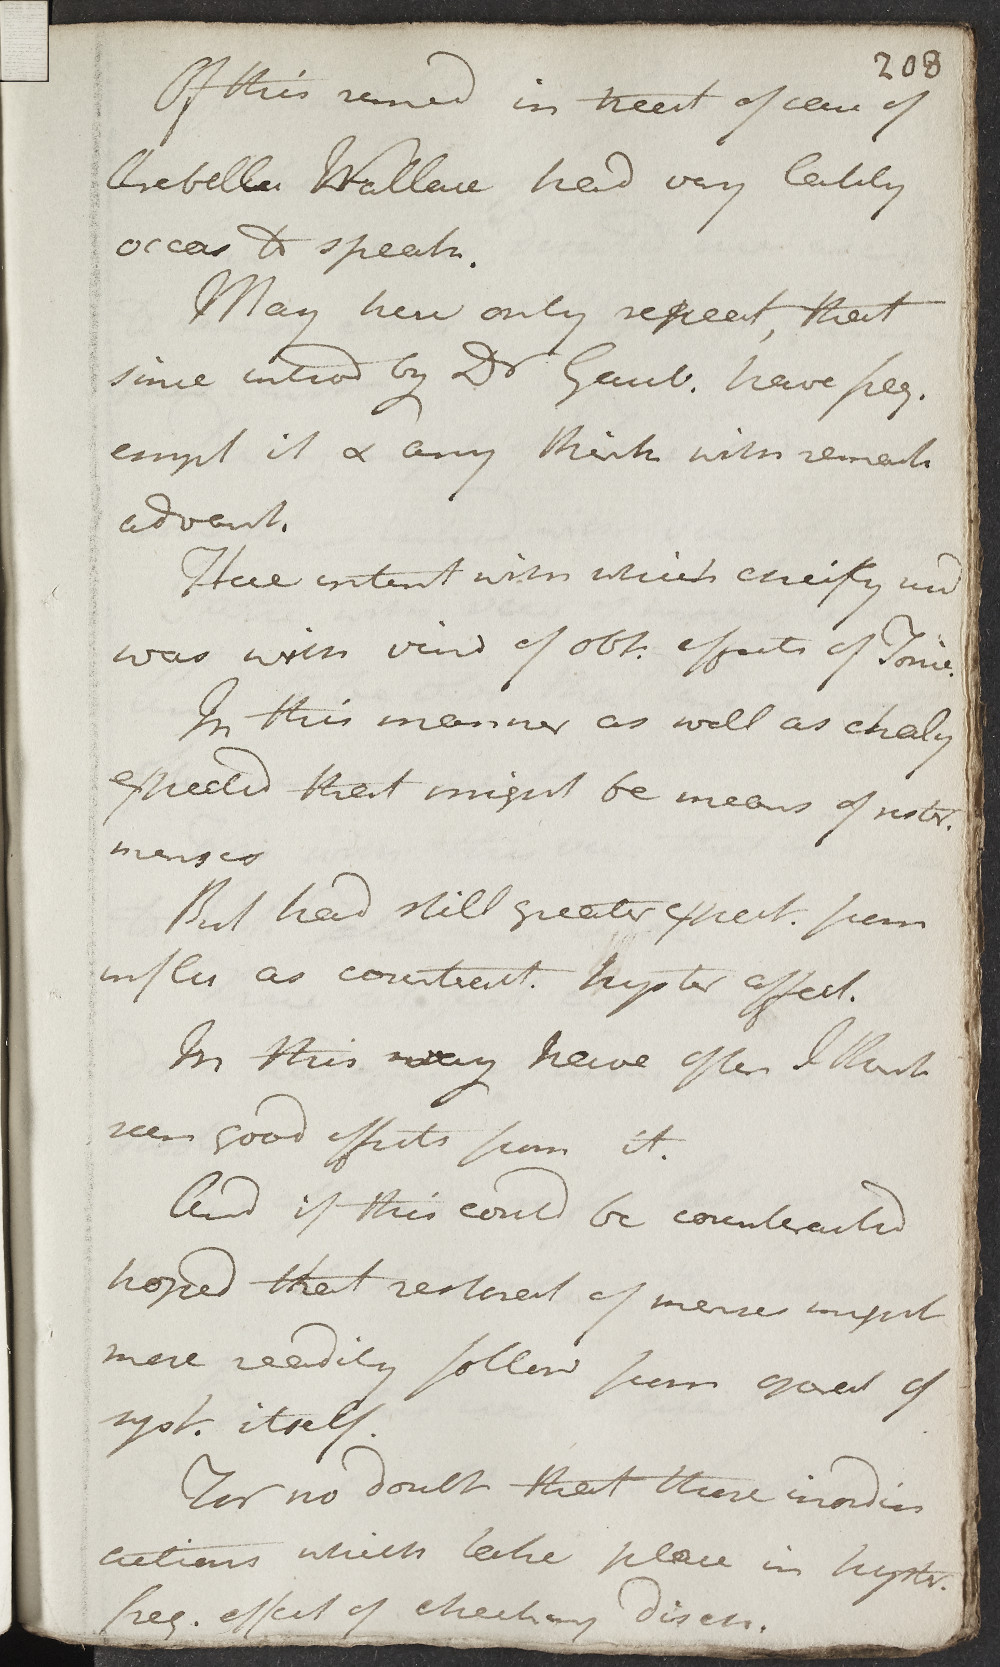 208
Of this remed in treat of case of
Arabella Wallace had very lately
occas to speak.
May here only repeat, that
since introd by Dr Gaub. have freq.
empl it & any think with remark
advant.
The intent with which chiefly used
was with view of obt. effects of Tonic.
In this manner as well as chaly
expected that might be means of restor.
menses
But had still greater expect. from
influ as counteract. hyster affect.
In this way have often I think
seen good effects from it.
And if this could be counteracted
hoped that restorat of menses might
more readily follow from operat of
syst. itself.
For no doubt that these inordin
actions which take place in hyster.
freq. effect of checking disch.